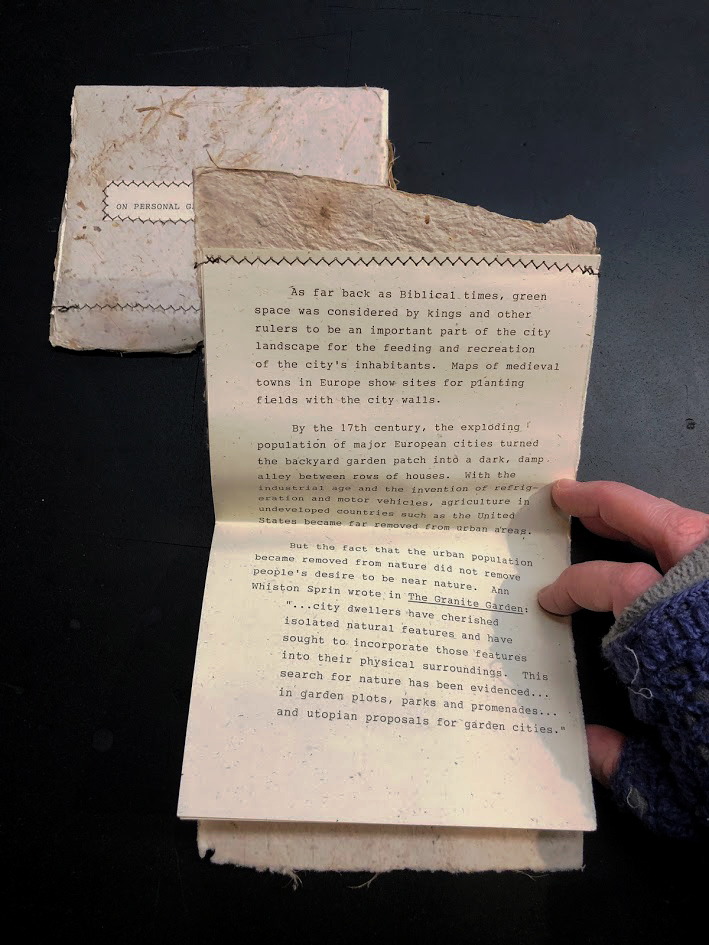 ON PERSONAL
As far back as Biblical times, green
space was considered by kings and other
rulers to be an important part of the city
landscape for the feeding and recreation
of the city's inhabitants. Maps of medieval
towns in Europe show sites for planting
fields with the city walls.
By the 17th century, the exploding
population of major European cities turned
the backyard garden patch into a dark, damp
alley between rows of houses. With the
industrial age and the invention of refrig-
eration and motor vehicles, agriculture in
undeveloped countries such as the United
States became far removed from urban areas.
But the fact that the urban population
became removed from nature did not remove
people's desire to be near nature. Ann
Whiston Sprin wrote in The Granite Garden:
"...city dwellers have cherished
isolated natural features and have
sought to incorporate those features
into their physical surroundings. This
search for nature has been evidenced...
in garden plots, parks and promenades...
and utopian proposals for garden cities."